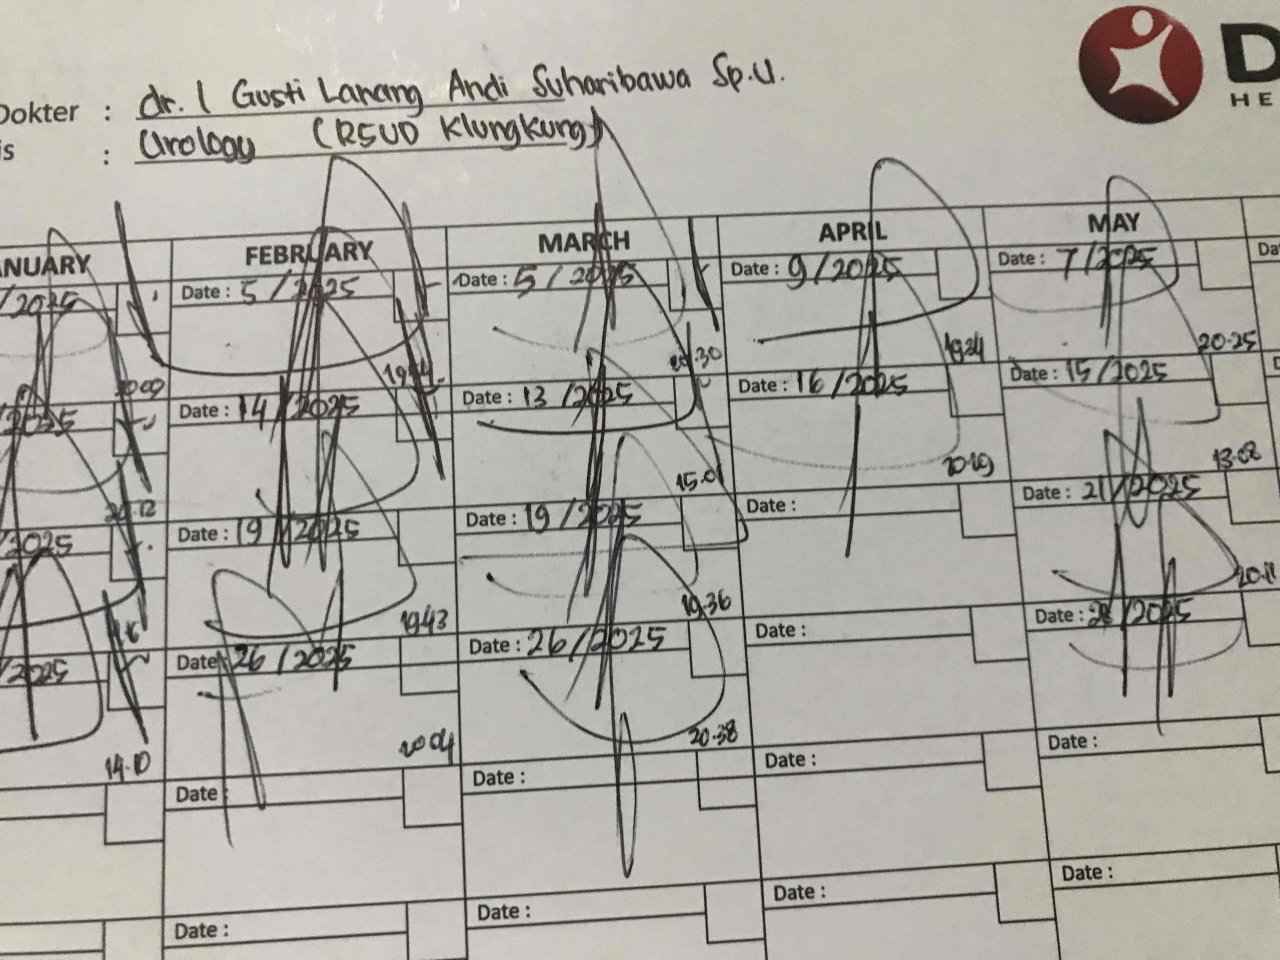 D
HE
Dokter : dr. I Gusti Lanang Andi Suharibawa Sp.U.
is : Urology (RSUD Klungkung)
NUARY FEBRUARY MARCH APRIL MAY
/2025 Date : 5 /2025 Date : 5 /2025 Date : 9/2025 Date : 7/2025 Da
20.09 19.24 20.25
/2025 Date : 14 /2025 Date : 13 /2025 Date : 16/2025 Date : 15/2025 D
20.12 15.01 20.19 13.02
/2025 Date : 19 /2025 Date : 19 /2025 Date : Date : 21/2025
19.43 19.36 20.11
/2025 Date 26 /2025 Date : 26/2025 Date : Date : /2025
14.10 20.04 20.38
Date Date : Date : Date :
Date : Date : Date : Date :